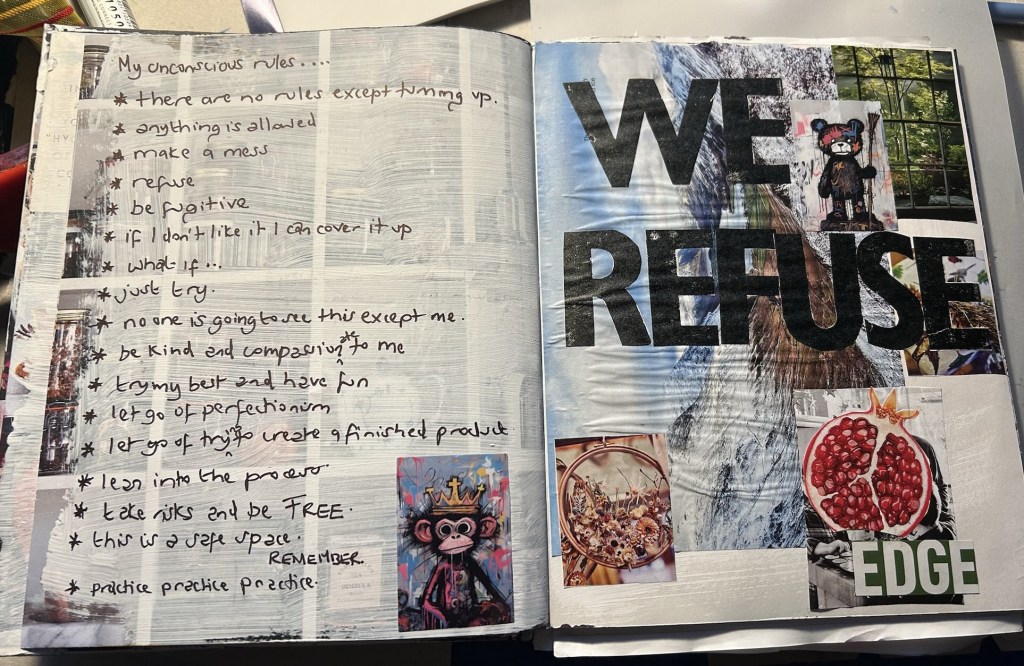 My unconscious rules....
* there are no rules except turning up.
* anything is allowed
* make a mess
* refuse
* be fugitive
* if I don't like it I can cover it up
* what if...
* just try.
* no one is going to see this except me.
* be kind and compassionate to me
* try my best and have fun
* let go of perfectionism
* let go of trying to create a finished product
* lean into the process.
* take risks and be FREE.
* this is a safe space.
REMEMBER.
* practice practice practice.
WE
REFUSE
EDGE